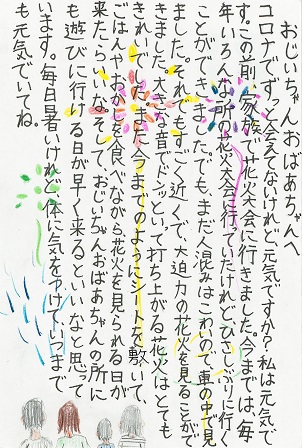 おじいちゃんおばあちゃんへ
コロナでずっと会えてないけれど、元気ですか？私は元気で
す。この前、家族で花火大会に行きました。今までは、毎
年いろんな所の花火大会に行っていたけれど、ひさしぶりに行く
ことができました。でも、まだ人混みはこわいので、車の中で見
ました。それでもすごく近くで、大迫力の花火を見ることがで
きました。大きな音でドンッといって打ち上がる花火はとても
きれいでした。また今までのようにシートを敷いて、
ごはんやおかしを食べながら花火を見られる日が
来たらいいな。そして、おじいちゃんおばあちゃんの所に
も遊びに行ける日が早く来るといいなと思って
います。毎日暑いけれど体に気をつけて、いつまで
も元気でいてね。